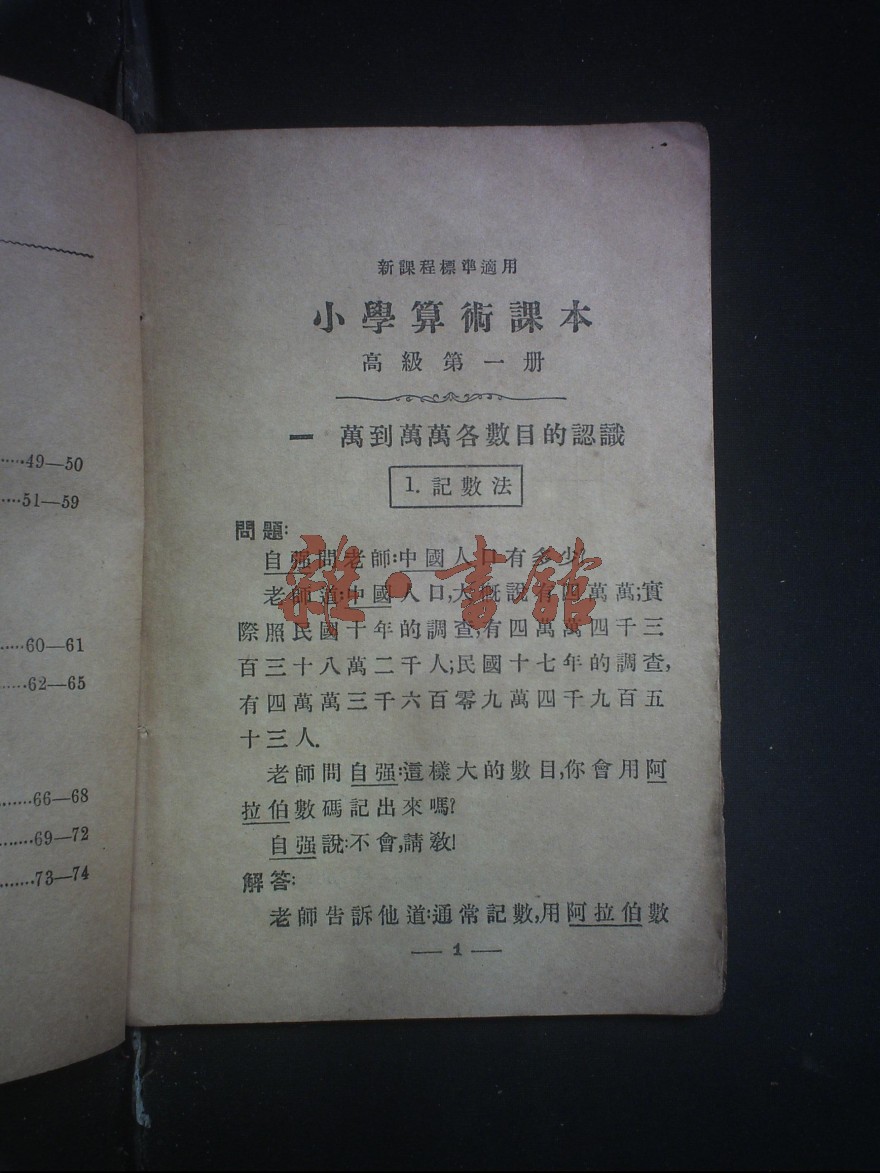 49—50
51—59
60—61
62—65
66—68
69—72
73—74
新課程標準適用
小學算術課本
高級第一册
一 萬到萬萬各數目的認識
1. 記數法
問題:
自强問老師:中國人口有多少?
老師道:中國人口,大概說有四萬萬;實
際照民國十年的調查,有四萬萬四千三
百三十八萬二千人;民國十七年的調查,
有四萬萬三千六百零九萬四千九百五
十三人.
老師問自强:這樣大的數目,你會用阿
拉伯數碼記出來嗎?
自强說:不會,請敎!
解答:
老師告訴他道:通常記數,用阿拉伯數
— 1 —
雜·書館